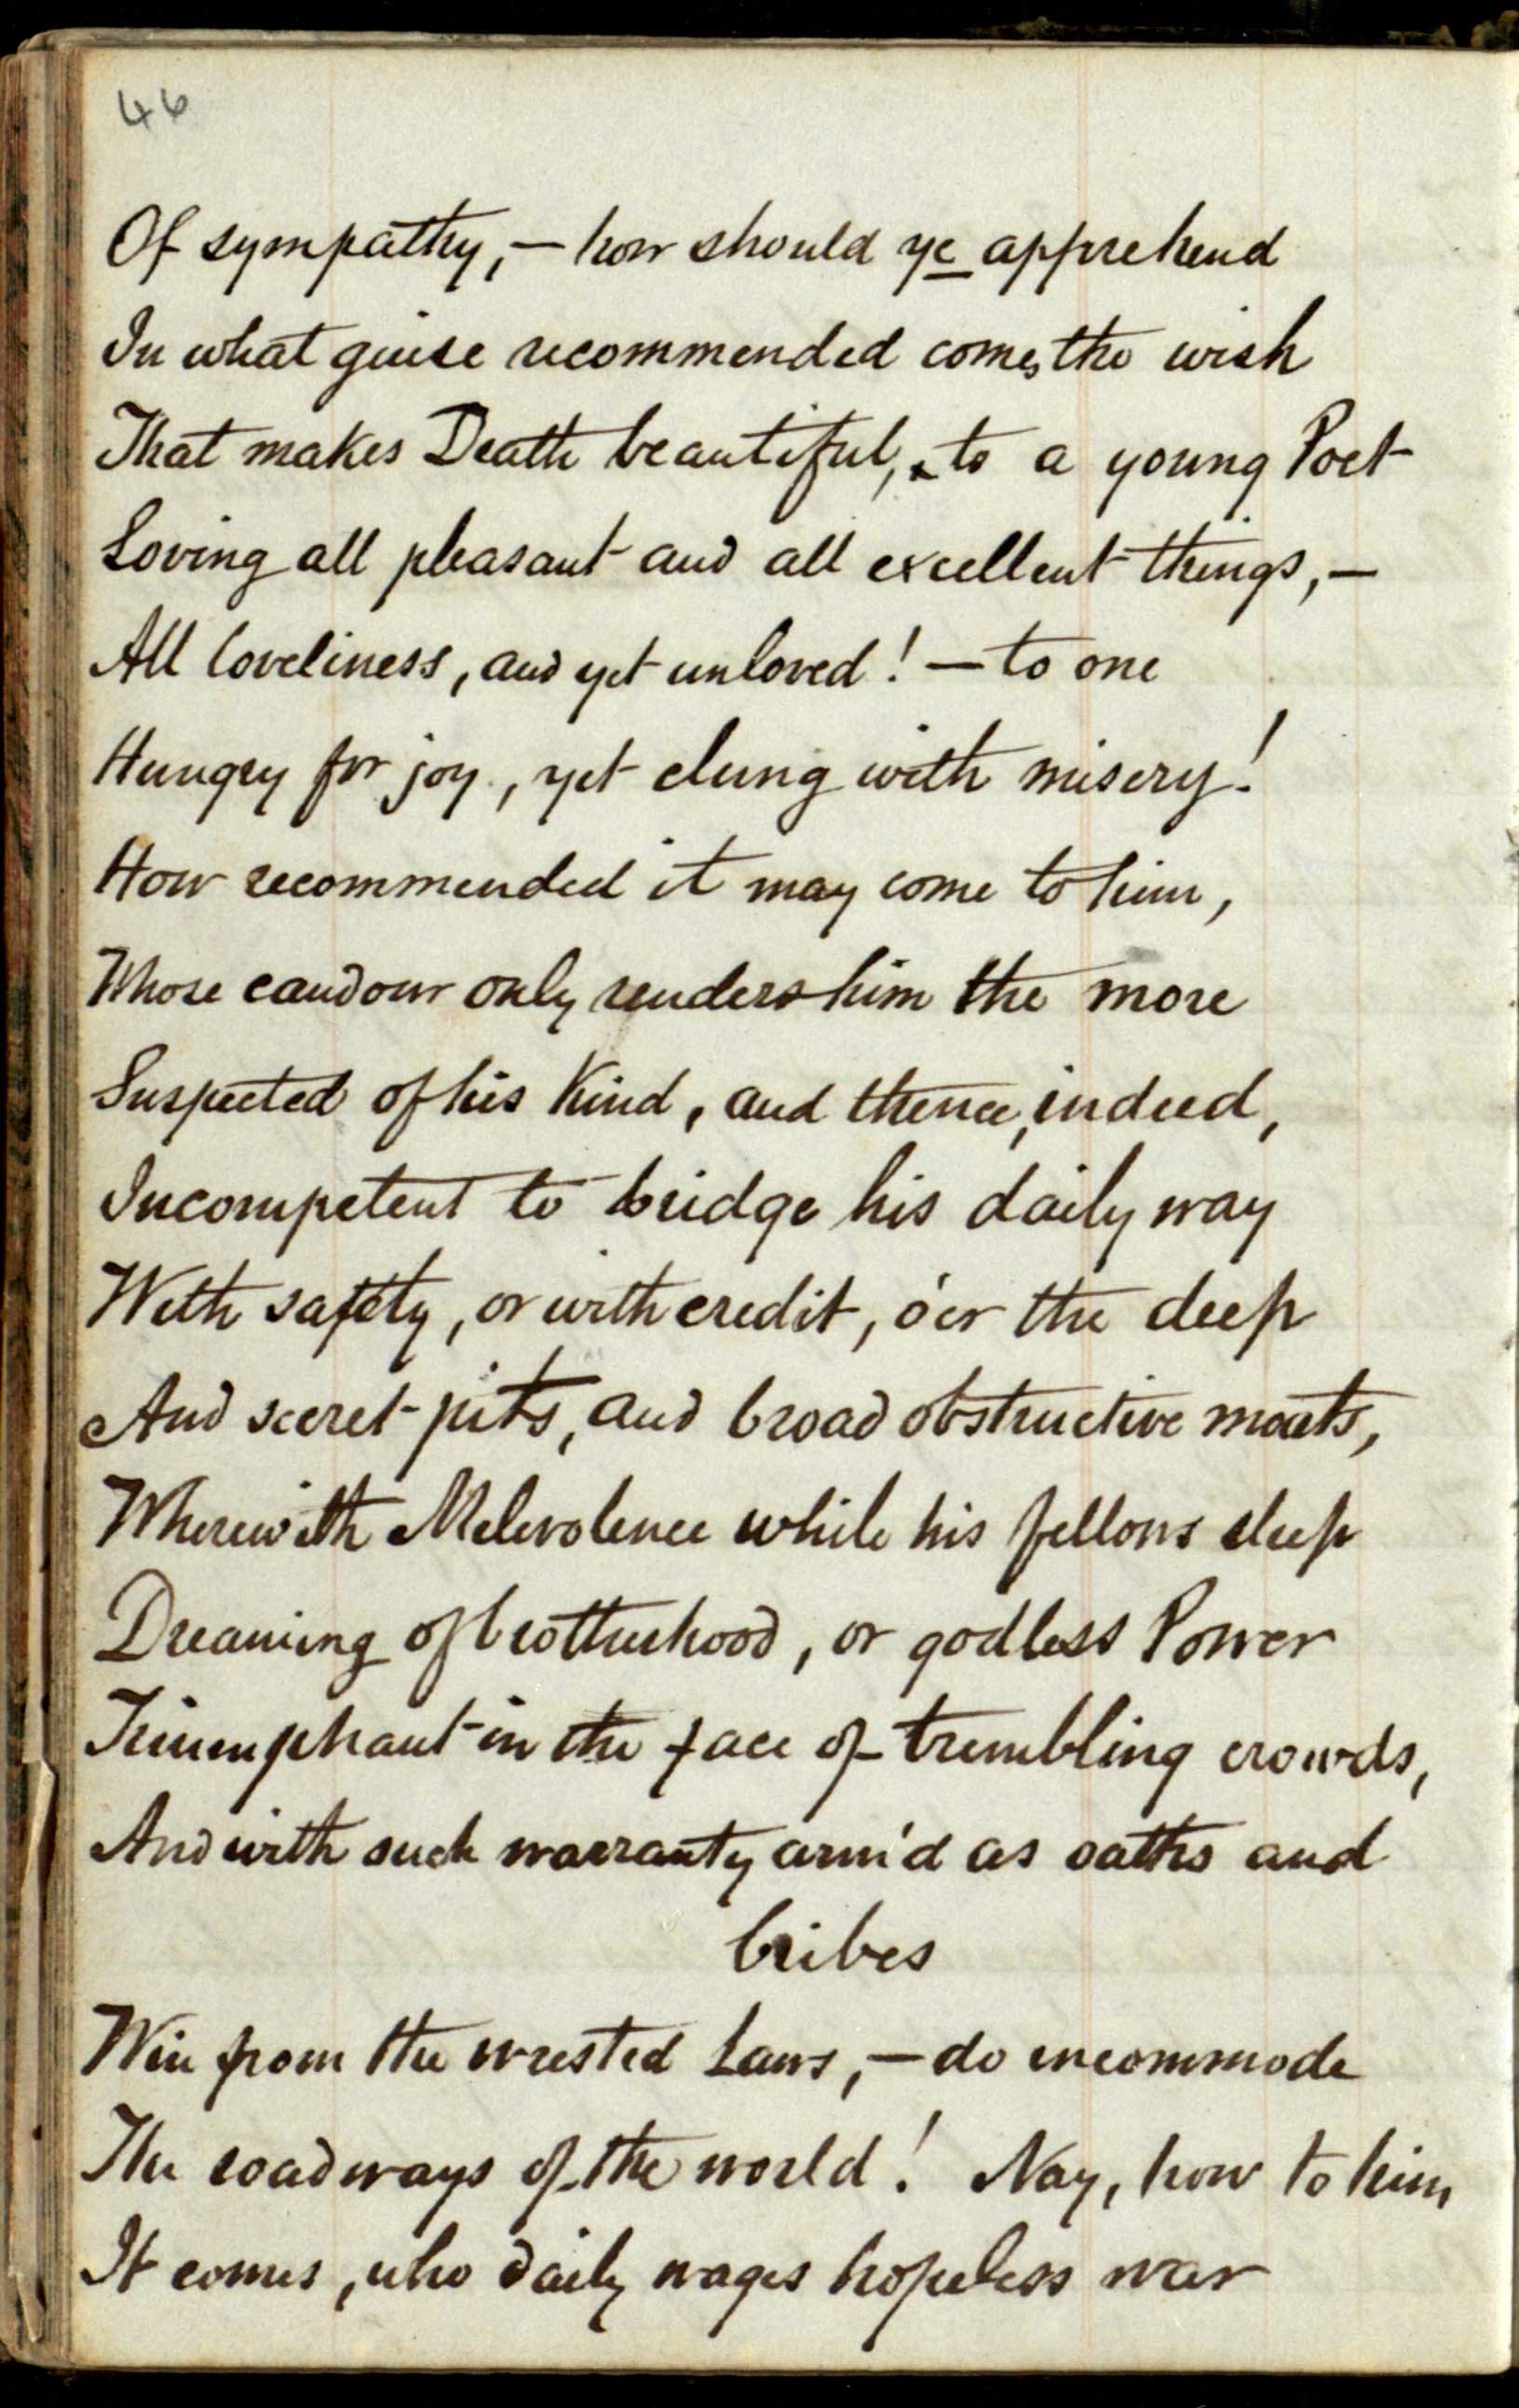 46
Of sympathy, — how should ye apprehend
In what guise recommended comes the wish
That makes Death beautiful, to a young Poet
Loving all pleasant and all excellent things, —
All loveliness, and yet unloved! — to one
Hungry for joy, yet clung with misery!
How recommended it may come to him,
Whose candour only renders him the more
Suspected of his kind, and thence, indeed,
Incompetent to bridge his daily way
With safety, or with credit, o'er the deep
And secret pits, and broad obstructive moats,
Wherewith Malevolence while his fellows sleep
Dreaming of brotherhood, or godless Power
Triumphant in the face of trembling crowds,
And with such warranty arm'd as oaths and
bribes
Win from the wrested Laws, — do incommode
The roadways of the world! Nay, how to him
It comes, who daily wages hopeless war